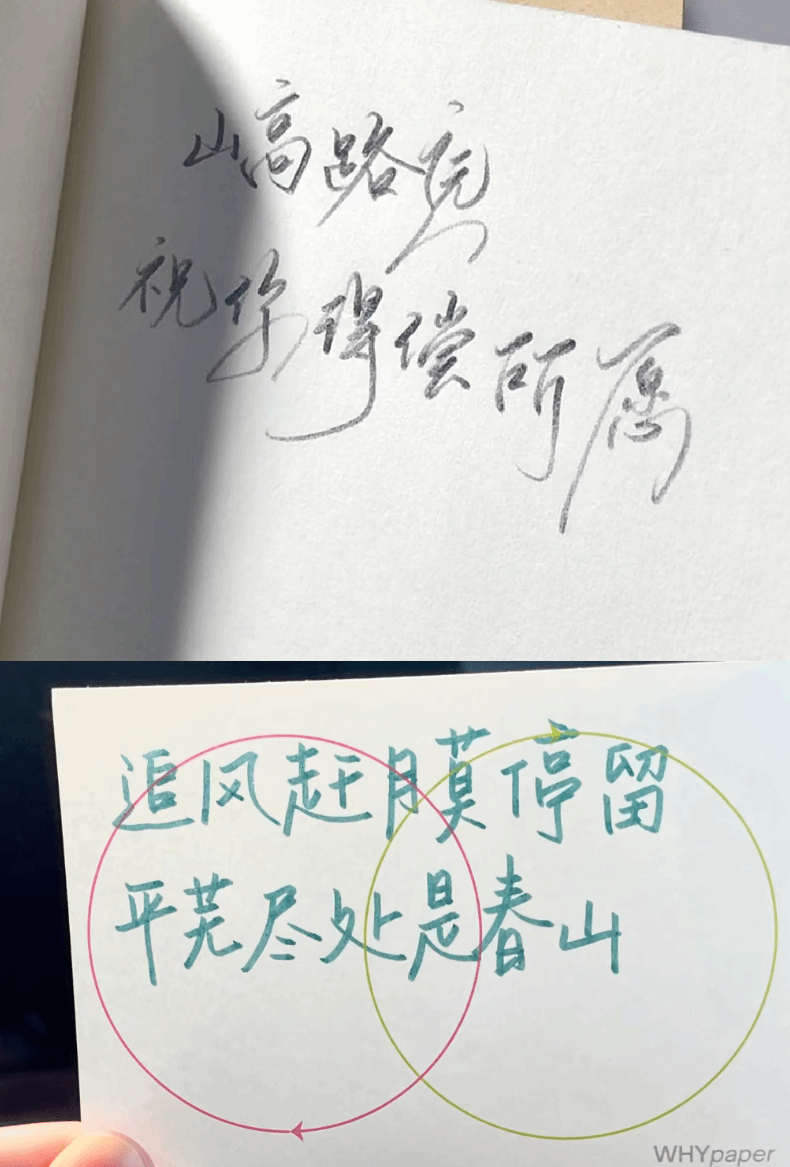 山高路远
祝你得偿所愿
追风赶月莫停留
平芜尽处是春山
WHYpaper